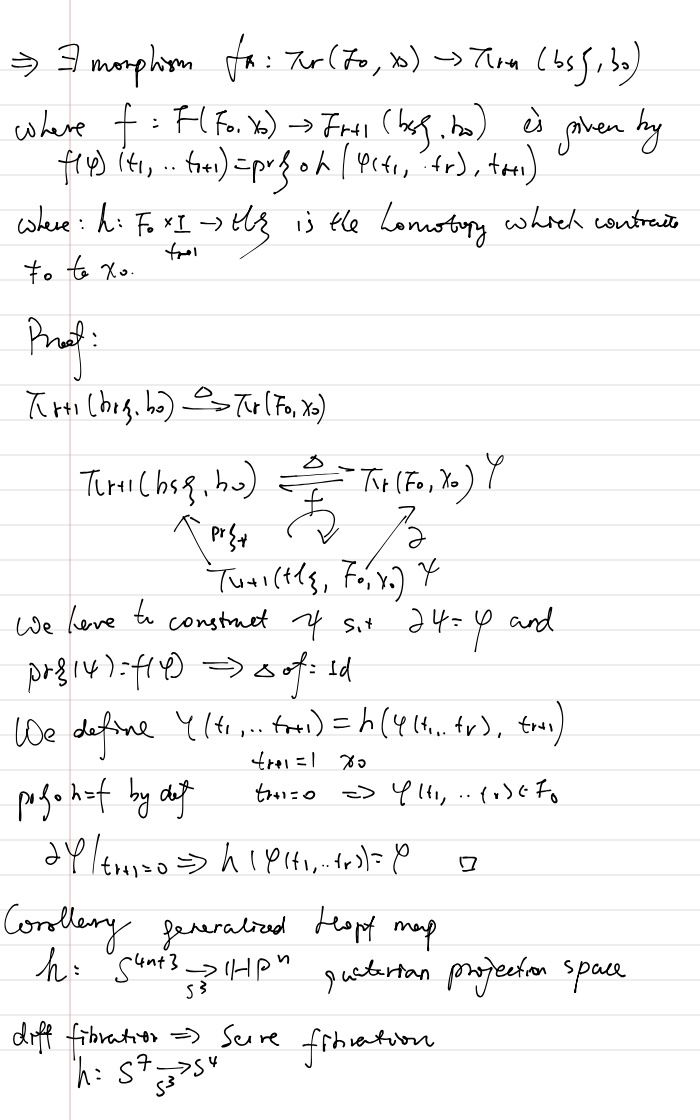 ⇒ ∃ morphism f_* : π_r(F_0, x_0) → π_{r+1} (bsξ, b_0)
where f : F(F_0, x_0) → F_{r+1} (bsξ, b_0) is given by
f(φ) (t_1, .. t_{r+1}) = prξ ∘ h (φ(t_1, .. t_r), t_{r+1})
where : h : F_0 × I → tlξ is the homotopy which contracts
t_{r+1}
F_0 to x_0.
Proof :
π_{r+1} (bsξ, b_0) →^Δ π_r (F_0, x_0)
π_{r+1} (bsξ, b_0) ⇌ π_r (F_0, x_0) φ
Δ
f
prξ_* ∂
π_{r+1} (tlξ, F_0, x_0) ψ
We have to construct ψ s.t ∂ψ = φ and
prξ(ψ) = f(φ) ⇒ Δ∘f = Id
We define ψ(t_1, .. t_{r+1}) = h(φ(t_1, .. t_r), t_{r+1})
t_{r+1} = 1 x_0
prξ∘h = f by def t_{r+1} = 0 ⇒ φ(t_1, .. t_r) ∈ F_0
∂φ/t_{r+1} = 0 ⇒ h(φ(t_1, .. t_r)) = φ □
Corollary generalized Hopf map
h : S^{4n+3} →_{S^3} HP^n quaterian projection space
diff fibration ⇒ Serre fibration
h : S^7 →_{S^3} S^4